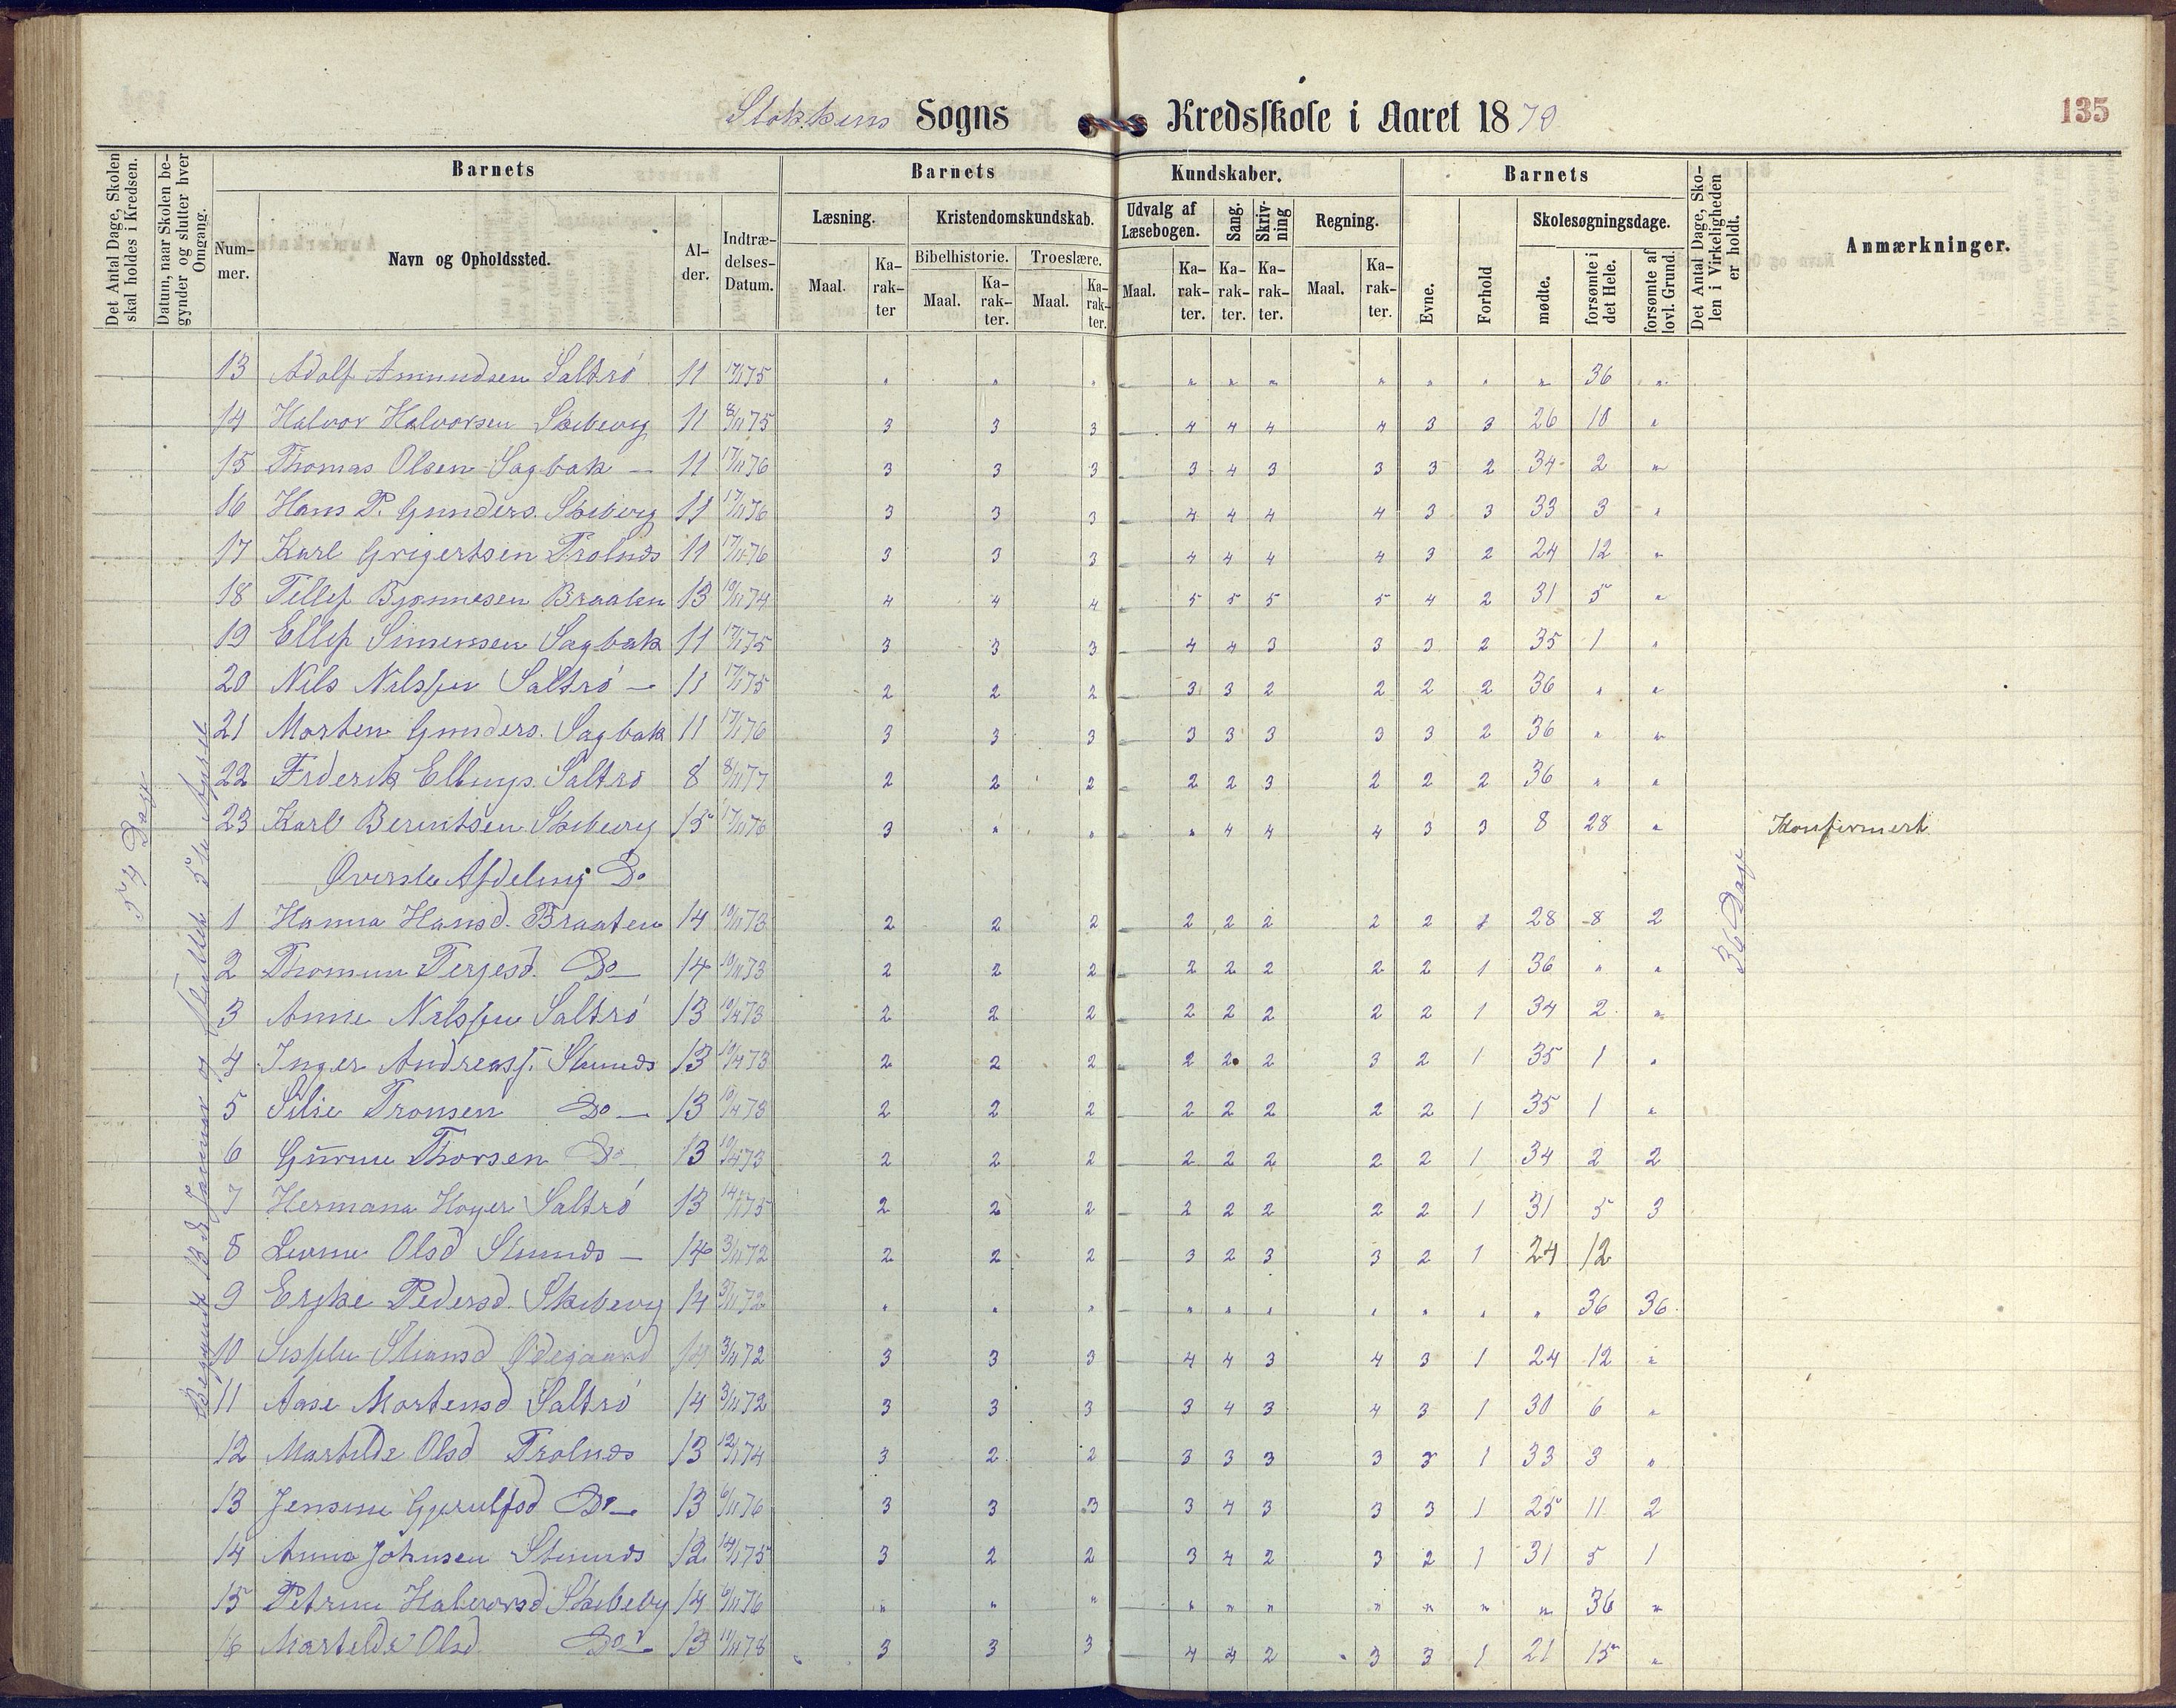 Stokkens Sogns Kredsskole i Aaret 1879
135
Det Antal Dage, Skolen skal holdes i Kredsen.
Datum, naar Skolen begynder og slutter hver Omgang.
Barnets
Nummer.
Navn og Opholdssted.
Alder.
Indtrædelses-Datum.
Barnets Kundskaber.
Læsning.
Maal.
Karakter
Kristendomskundskab.
Bibelhistorie.
Maal.
Karakter.
Troeslære.
Maal.
Karakter.
Udvalg af Læsebogen.
Maal.
Karakter.
Sang.
Karakter.
Skrivning
Karakter.
Regning.
Maal.
Karakter.
Barnets
Evne.
Forhold
Skolesøgningsdage.
mødte.
forsømte i det Hele.
forsømte af lovl. Grund.
Det Antal Dage, Skolen i Virkeligheden er holdt.
Anmærkninger.
54 Dage
36 Dage
13 Adolf Amundsen Saltrö 11 17/1 75 " " " " " " " " " " 36 "
14 Halvor Halvorsen Skibevig 11 8/11 75 3 3 3 4 4 4 4 3 3 26 10 "
15 Thomas Olsen Sagbak — 11 17/11 76 3 3 3 3 4 3 3 3 2 34 2 "
16 Hans P. Gunders. Skibevig 11 17/11 76 3 3 3 4 4 4 4 3 3 33 3 "
17 Karl Grigertsen Trolnæs 11 17/11 76 3 3 3 4 4 4 4 3 2 24 12 "
18 Tellef Bjønnesen Braaten 13 10/11 74 4 4 4 5 5 5 5 4 2 31 5 "
19 Ellef Simensen Sagbak 11 17/1 75 3 3 3 4 4 3 3 3 2 35 1 "
20 Nils Nilssen Saltrö — 11 17/1 75 2 2 2 3 3 2 2 2 2 36 " "
21 Morten Gunders. Sagbak 11 17/1 76 3 3 3 3 3 3 3 3 2 36 " "
22 Frderik Ellings. Saltrö 8 8/11 77 2 2 2 2 2 3 2 2 2 36 " "
23 Karl Berntsen Skibevig 15 17/11 76 3 " " " 4 4 4 3 3 8 28 " Konfirmert
Øverste Afdeling Do
1 Hanna Hansd. Braaten 14 10/11 73 2 2 2 2 2 2 2 2 1 28 8 2
2 Thomine Terjesd. Do — 14 10/11 73 2 2 2 2 2 2 2 2 1 36 " "
3 Anne Nilssen Saltrö 13 10/4 73 2 2 2 2 2 2 2 2 1 34 2 "
4 Inger Andreass. Stunæs 13 10/4 73 2 2 2 2 2 2 3 2 1 35 1 "
5 Silie Tronsen Do — 13 10/4 73 2 2 2 2 2 2 2 2 1 35 1 "
6 Gurine Thorsen Do 13 10/4 73 2 2 2 2 2 2 2 2 1 34 2 2
7 Hermana Hoyer Saltrö 13 14/1 75 2 2 2 2 2 2 2 2 1 31 5 3
8 Olsd Stunæs — 14 3/11 72 2 2 2 3 2 3 3 2 1 24 12
9 Pedersd. Skibevig 14 3/11 72 " " " " " " " " " " 36 36
10 Ødegaard 14 3/11 72 3 3 3 4 4 3 4 3 1 24 12 "
11 Aase Mortensd Saltrö 14 3/11 72 3 3 3 3 4 3 4 3 1 30 6 "
12 Martilde Olsd Trolnæs 13 12/1 74 3 2 2 3 3 3 3 3 1 33 3 "
13 Jensine Gjerulfsd Do — 13 6/11 76 3 3 3 3 4 3 3 3 1 25 11 2
14 Anna Johnsen Stunæs 12 14/1 75 3 2 2 3 4 2 3 2 1 31 5 1
15 Petrine Halvorsd Skibevig 14 6/11 76 " " " " " " " " " " 36 "
16 Martilde Olsd Do — 13 11/11 78 3 3 3 4 4 2 3 3 1 21 15 "